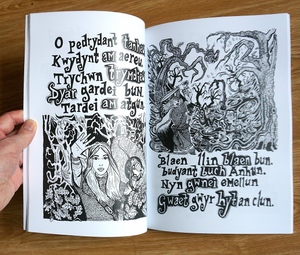 O Pedrydant
Kwydynt am aereu.
Trychwn trymdar
Spar gardei bun.
Tardei am atgun.
Blaen llin blaen bun.
budyant buch Anhun.
Nyn gwnei emellun
Gwaet gwyr hyt an clun.